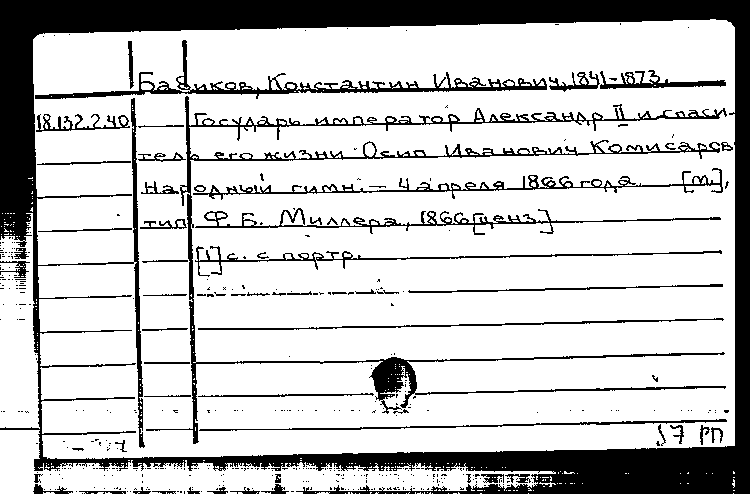 Бабиков, Константин Иванович, 1841-1873.
18.132.2.40 Государь император Александр II и спаси-
тель его жизни Осип Иванович Комисаров
Народный гимн. – 4 апреля 1866 года [М.],
тип. Ф. Б. Миллера, 1866 [ценз.]
[1] с. с портр.
57 РП